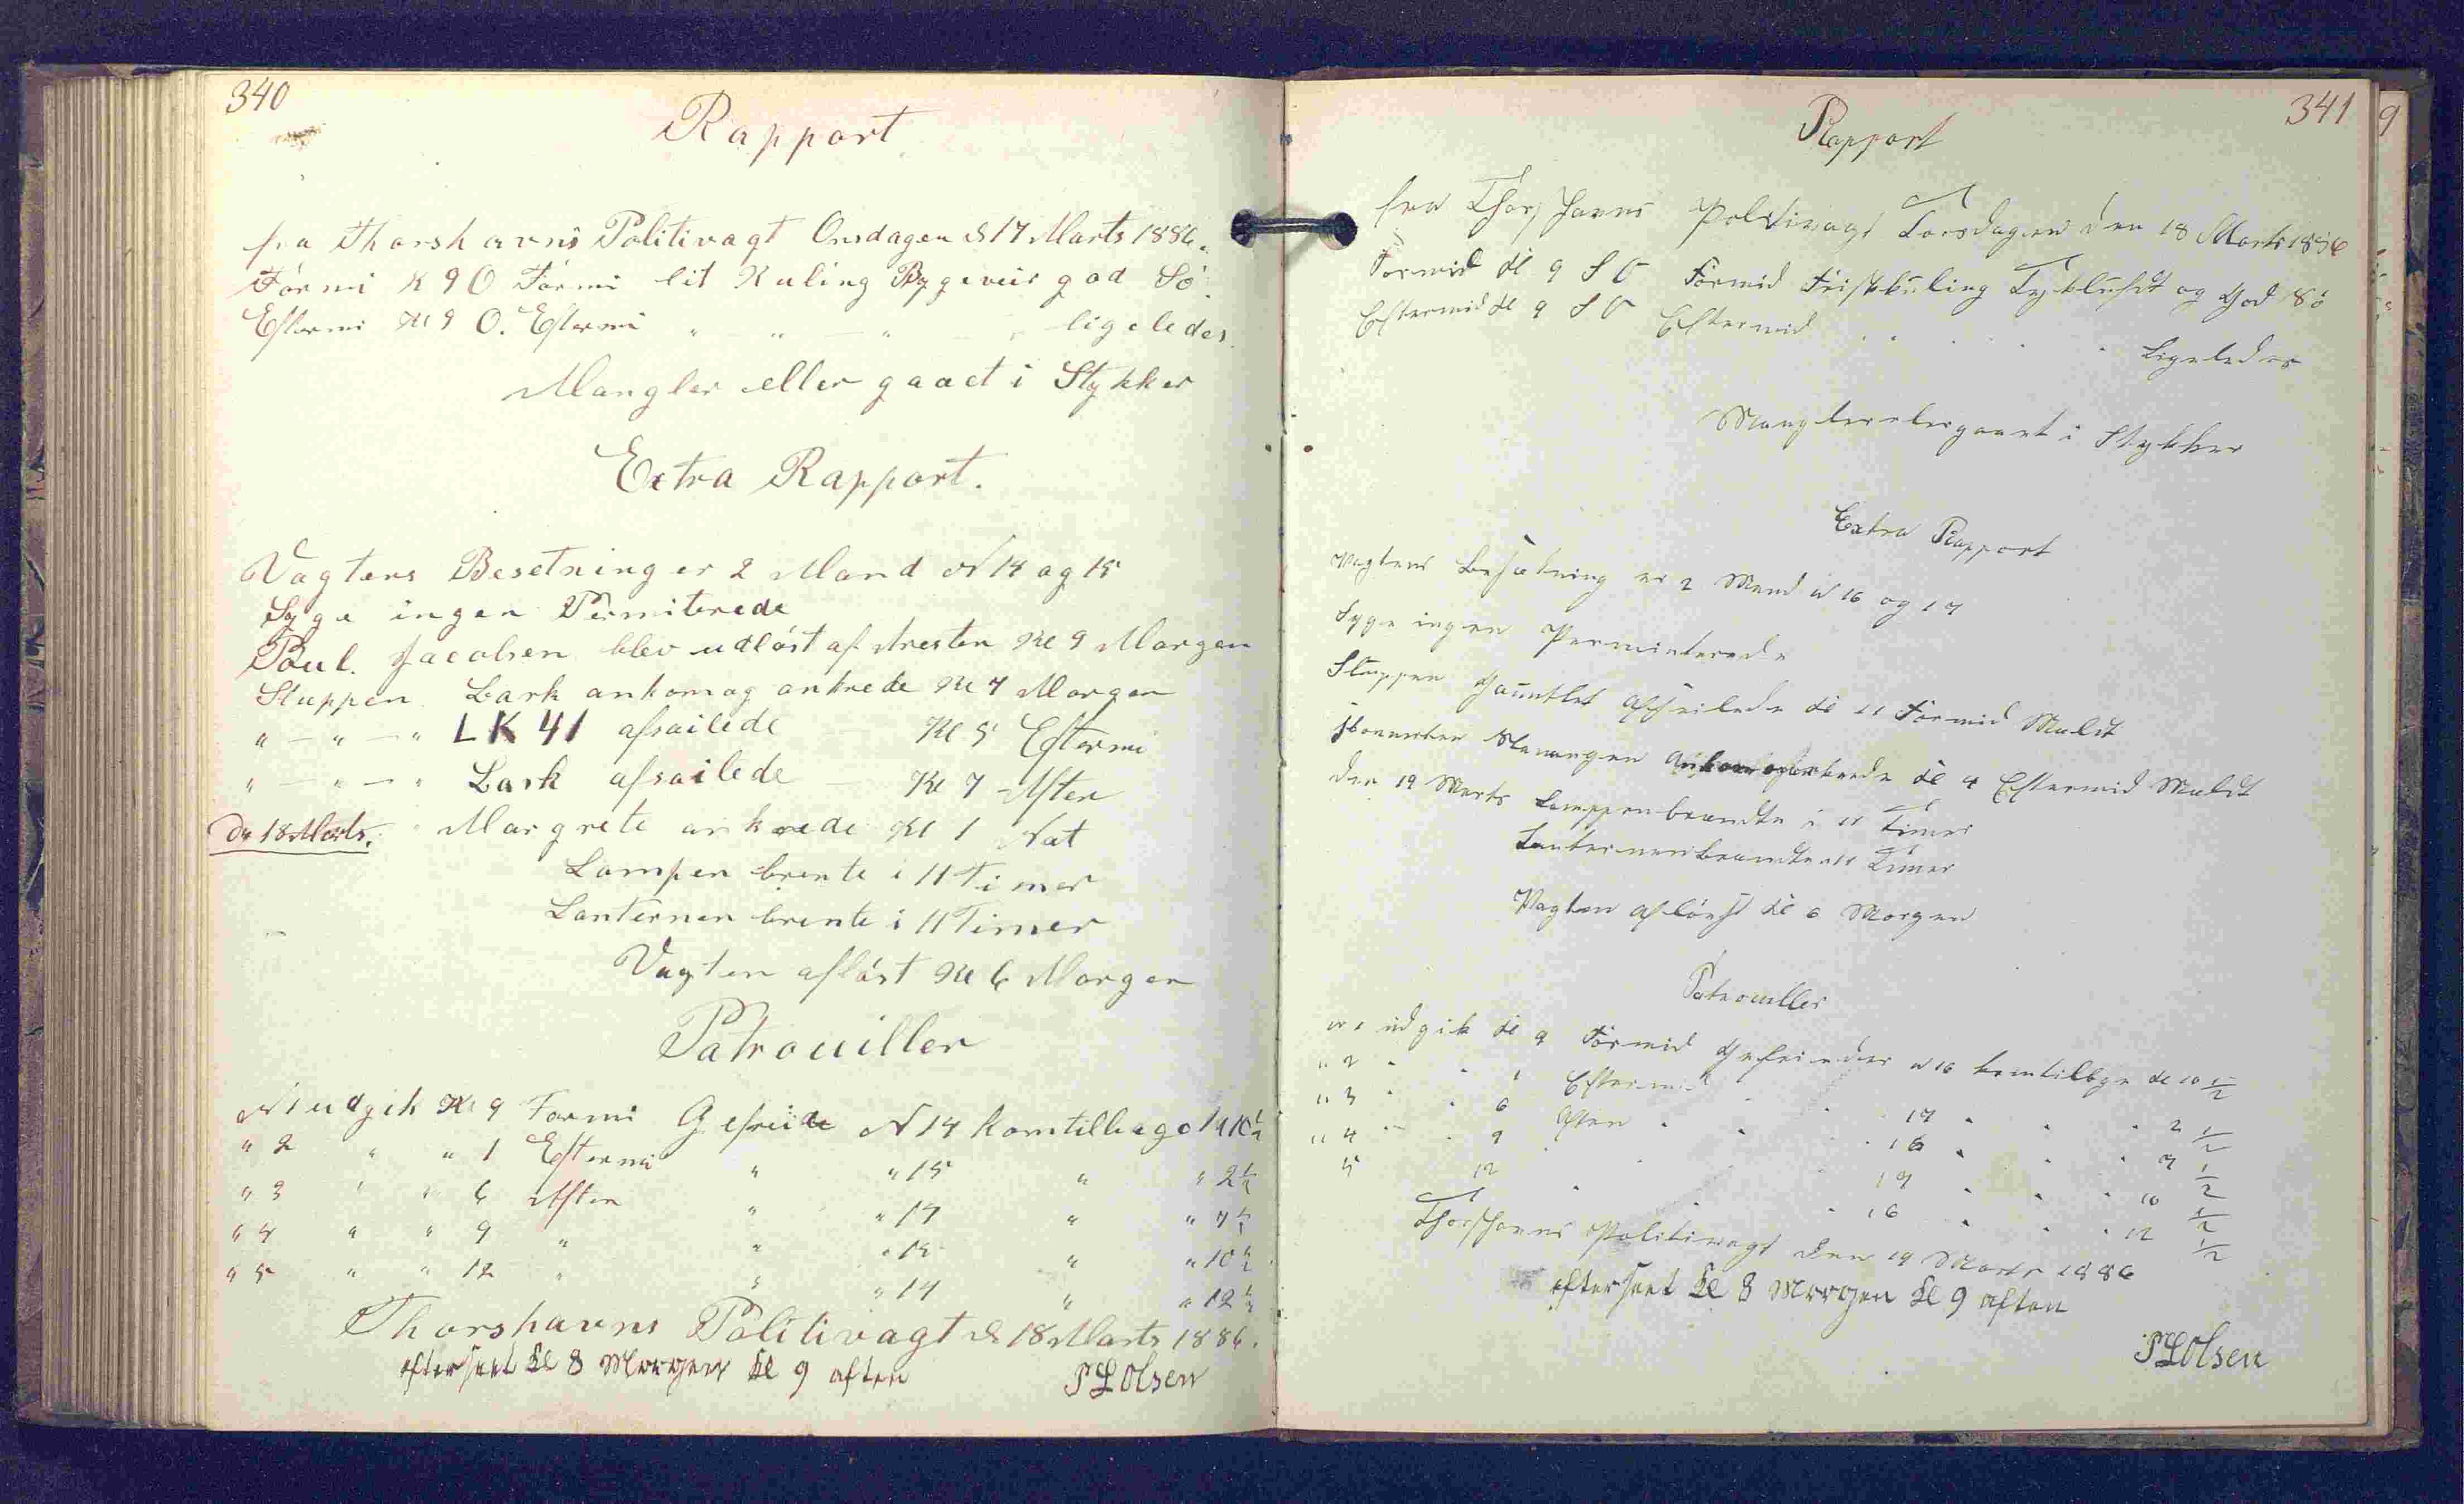 340
Rapport
fra Thorshavns Politivagt Onsdagen d 17 Marts 1886.
Førmi K 9 O Førmi lit Kuling Bygeveir god Sø
Eftermi Kl 9 O. Eftermi " " " ligeledes
Mangler eller gaaet i Stykker
Extra Rapport.
Vagtens Besetning er 2 Mand N 14 og 15
Syge ingen Permiterede
Poul. Jacobsen blev udløst af Aresten Kl 9 Morgen
Sluppen Lark ankom og ankrede Kl 7 Morgen
" — " — " LK 41 afsailede — Kl 5 Eftermi
" — " — " Lark afsailede — Kl 7 Aften
Dn 18 Marts. " Margrete ankrede Kl 1 Nat
Lampen brente i 11 Timer
Lanternen brente i 11 Timer
Vagten afløst Kl 6 Morgen
Patrouiller
N 1 udgik Kl 9 Formi Gefreide N 14 kom tilbage Kl 10 1/2
" 2 " " 1 Eftermi " " 15 " " 2 1/2
" 3 " " 6 Aften " " 14 " " 7 1/2
" 4 " " 9 " " " 15 " " 10 1/2
" 5 " " 12 " " " 14 " " 12 1/2
Thorshavns Politivagt d 18 Marts 1886.
efterseet Kl 8 Morgen Kl 9 aften
PLOlsen
341
9
Rapport
fra Thorshavns Politivagt Torsdagen den 18 Marts 1886
Formid Kl 9 S O Formid Friskkuling Tykluft og God Sö
Eftermid Kl 9 S O Eftermid . . . . . Ligeledes
Mangler elergaaet i Stykker
Extra Rapport
Vagtens Besætning er 2 Mand N 16 og 17
Syge ingen Perminterede
Sluppen Gauntlet afseilede Kl 11 Formid
Stavangen Kl 4 Eftermid
Den 19 Marts Lamppen brændte i 11 Timer
Lanternen brændte 11 Timer
Vagten aflöist Kl 6 Morgen
Patrouller
N 1 udgik Kl 9 Formid Gefreider N 16 komtilbge Kl 10 1/2
" 2 . . 1 Eftermid . . 17 . . . 2 1/2
" 3 . . 6 Aften . . . 16 . . . 7 1/2
" 4 . . 9 . . . 17 . . . 10 1/2
5 12 . . . 16 . . . 12 1/2
Thorshavns Politivagt den 19 Marts 1886
efterseet Kl 8 Morgen Kl 9 aften
PLOlsen